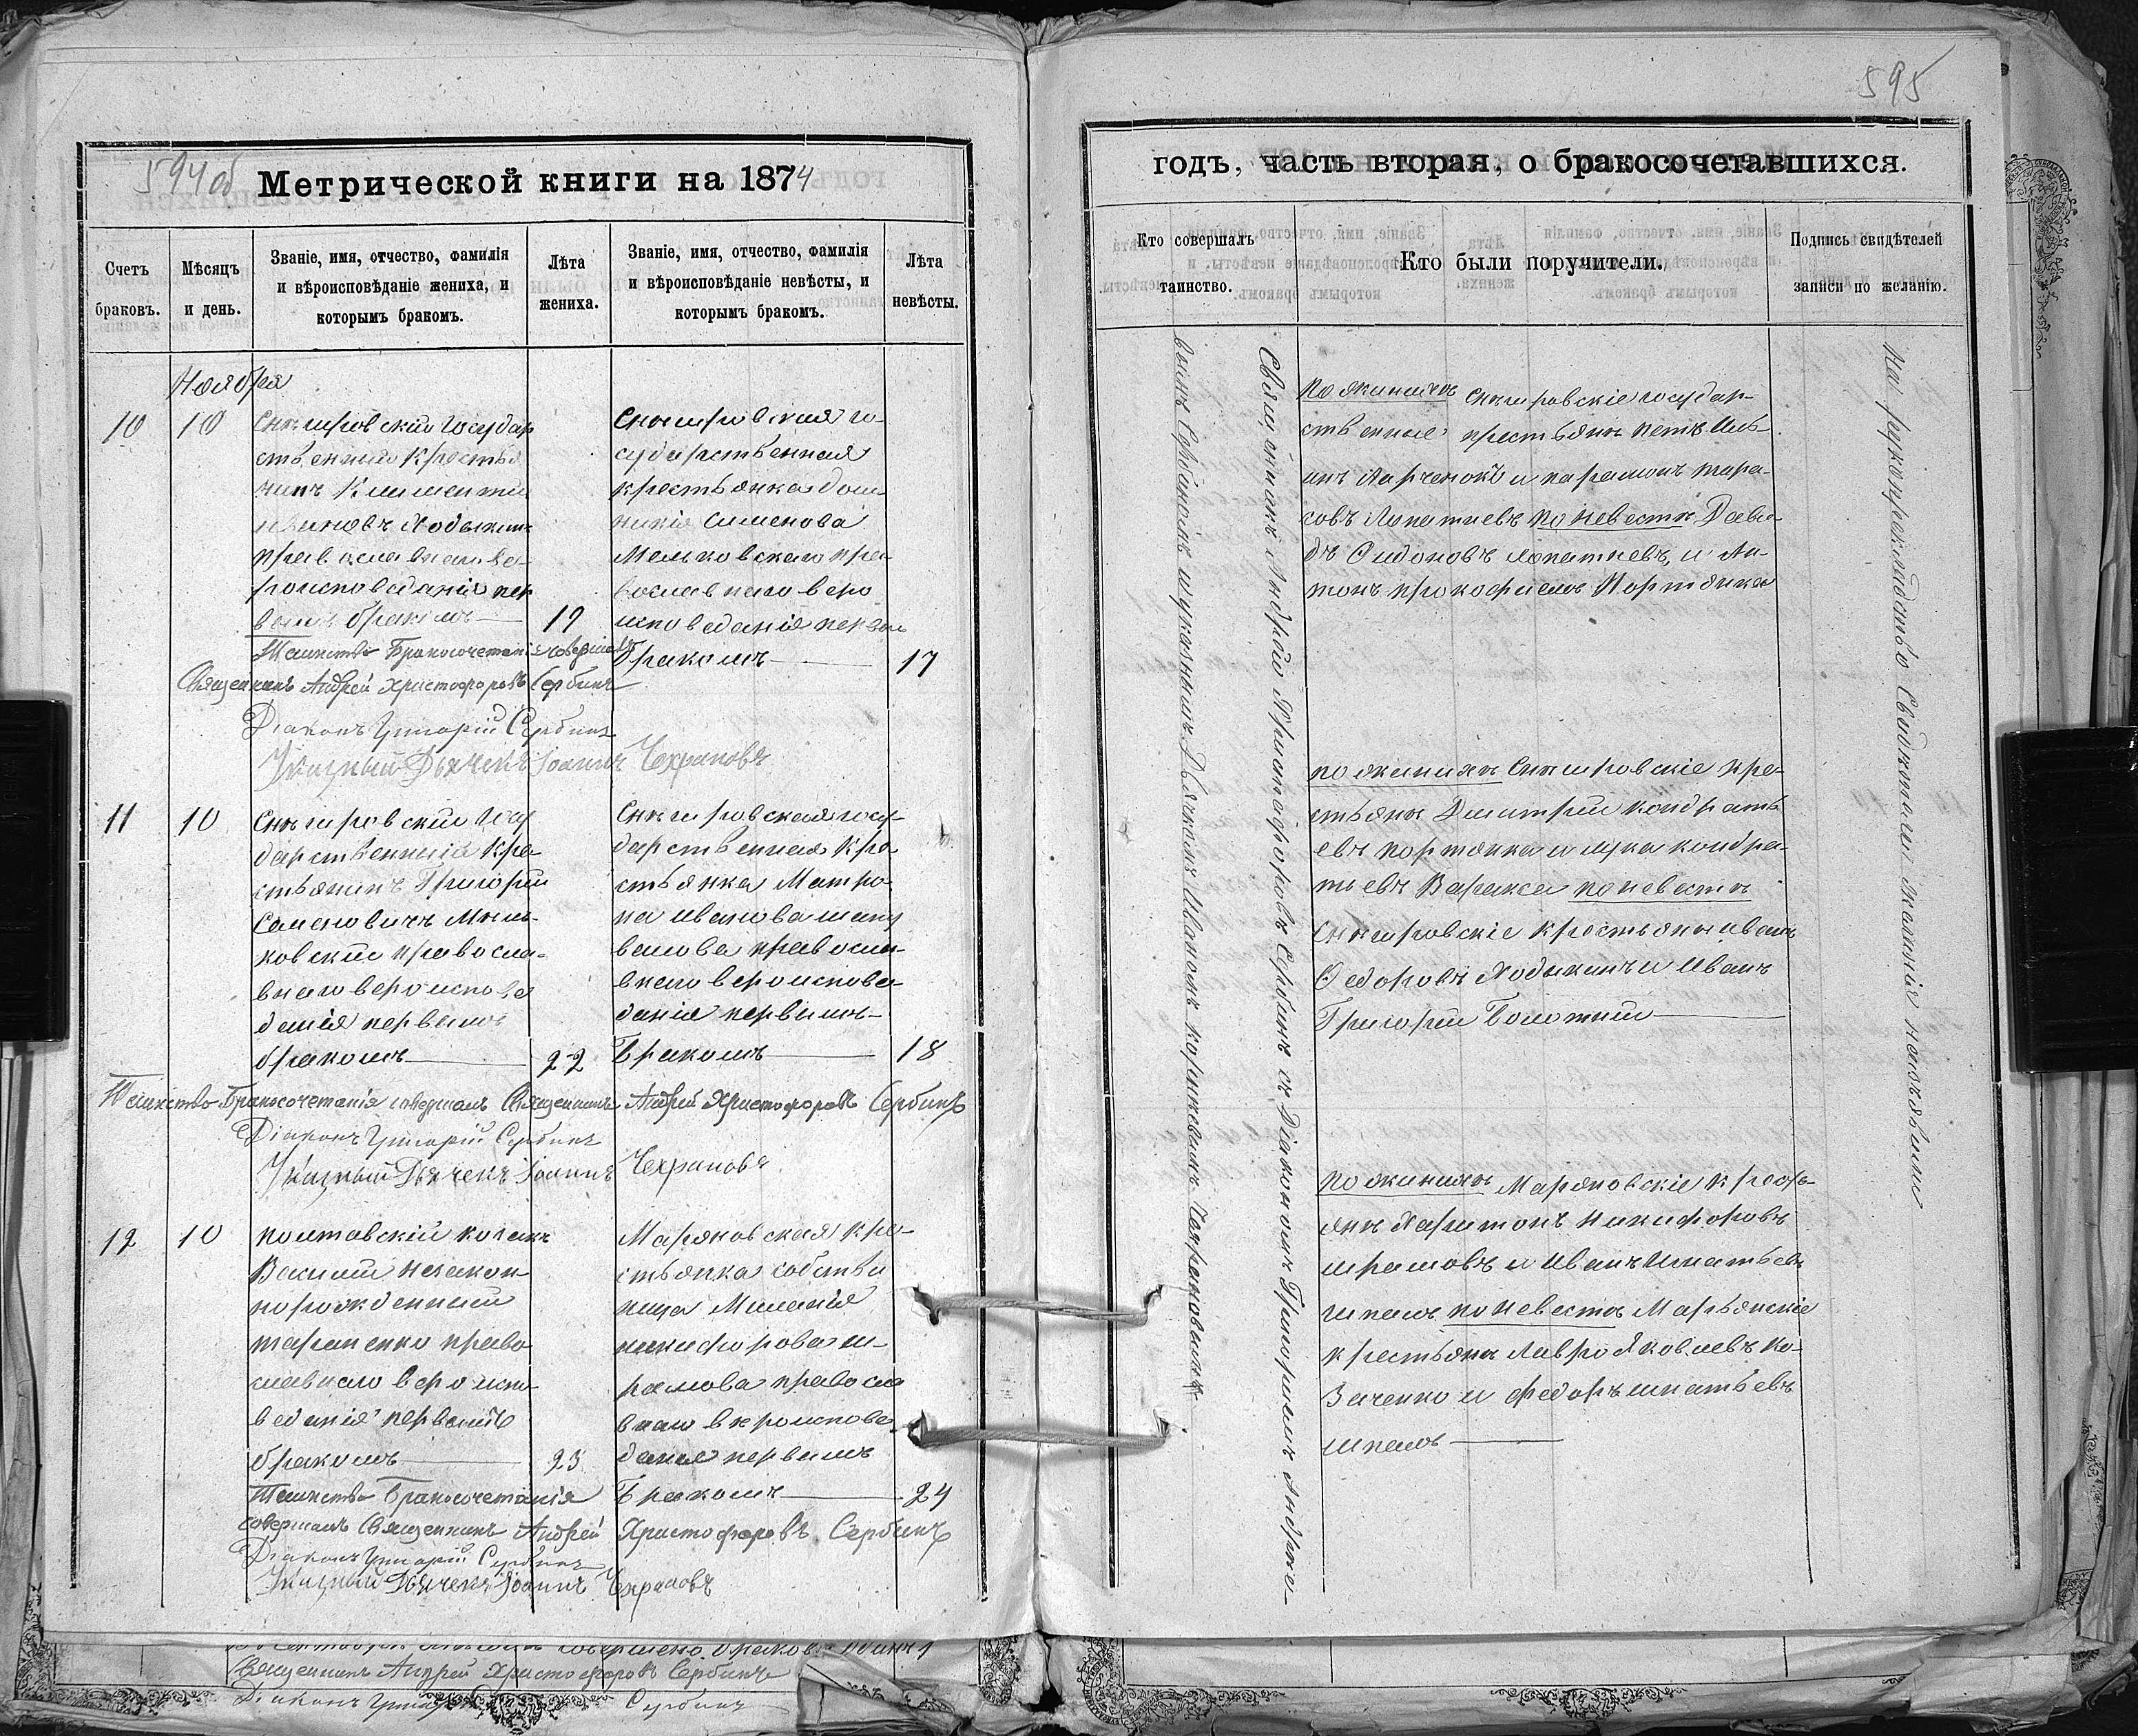 594об
Метрической книги на 1874
Счетъ браковъ.
Мѣсяцъ и день.
Званіе, имя, отчество, фамилія и вѣроисповѣданіе жениха, и которымъ бракомъ.
Лѣта жениха.
Званіе, имя, отчество, фамилія и вѣроисповѣданіе невѣсты, и которымъ бракомъ.
Лѣта невѣсты.
Ноября
10
10
Снѣгировскій Государ
ственный Крестья
нинъ Климентій
Ивановъ Ходыкинъ
православнаго ве
роисповеданія пер
вымъ бракомъ
19
Снѣгировская го-
сударственная
крестьянка Дом-
никія Сименова
Мельковскаго пра-
вославнаго веро
исповеданія первым
бракомъ
17
Таинство Бракосочетанія совершалъ
Священникъ Андрей Христофоровъ Сербинъ
Діаконъ Григорій Сербинъ
Указный Дьячекъ Іоаннъ Чехрановъ
11
10
Снѣгировскій Госу
дарственный Кре-
стьянинъ Григорій
Семеновичъ Мель-
ковскій правосла-
внаго вероиспове
данія первымъ
бракомъ
22
Снѣгировская госу-
дарственная Кре-
стьянка Матро-
на Иванова
православ-
внаго вероиспове-
данія первымъ
Бракомъ
18
Таинство Бракосочетанія совершалъ Священникъ Андрей Христофоровъ Сербинъ
Діаконъ Григорій Сербинъ
Указный Дьячекъ Іоаннъ Чехрановъ
12
10
полтавскій козакъ
Василій незакон-
норожденный
тараненко право
славнаго вероиспо-
веданія первымъ
бракомъ
23
Маряновская кре-
стьянка собствен
ница Миланія
никифорова ш-
рамова правосла
внаго вѣроиспове
данія первымъ
Бракомъ
24
Таинство Бракосочетанія
совершалъ Священникъ Андрей Христофоровъ Сербинъ
Діаконъ Григорій Сербинъ
Указный Дьячекъ Іоаннъ Чехрановъ
совершено браковъ одинъ 1
Священникъ Андрей Христофоровъ Сербинъ
Діаконъ Григорій Сербинъ
595
годъ, часть вторая, о бракосочетавшихся.
Кто совершалъ таинство.
Кто были поручители.
Подпись свидѣтелей записи по желанію.
Священникъ Андрей Христофоровъ Сербинъ съ Діакономъ Григоріемъ Андрее-
вымъ Сербиномъ и указнымъ Дьячкомъ Иваномъ Чехрановымъ
по женихѣ Снѣгировскіе государ-
ственные крестьяне
Харченокъ и парамонъ тара-
совъ Лопатиевъ по невестѣ Дави-
дъ Сидоновъ лопатиевъ, и Ан-
тонъ прокофиевъ Портянка
по женихѣ Снѣгировскіе кре-
стьяне Димитрій кондрать
евъ портянка и лука кондра-
тьевъ Варакса по невестѣ
Снѣгировскіе Крестьяне иванъ
Федоровъ Ходыкинъ и Иванъ
Григорій Болотній
по женихѣ Маряновскіе Кресть-
яне Харитонъ никифоровъ
шрамовъ и Иванъ Игнатьевъ
шпакъ по невестѣ Марьянскіе
крестьяне Лавро Яковлевъ Ко-
заченко и федоръ игнатьевъ
шпакъ
На рукоприкладство Свидѣтели желанія неизъявили